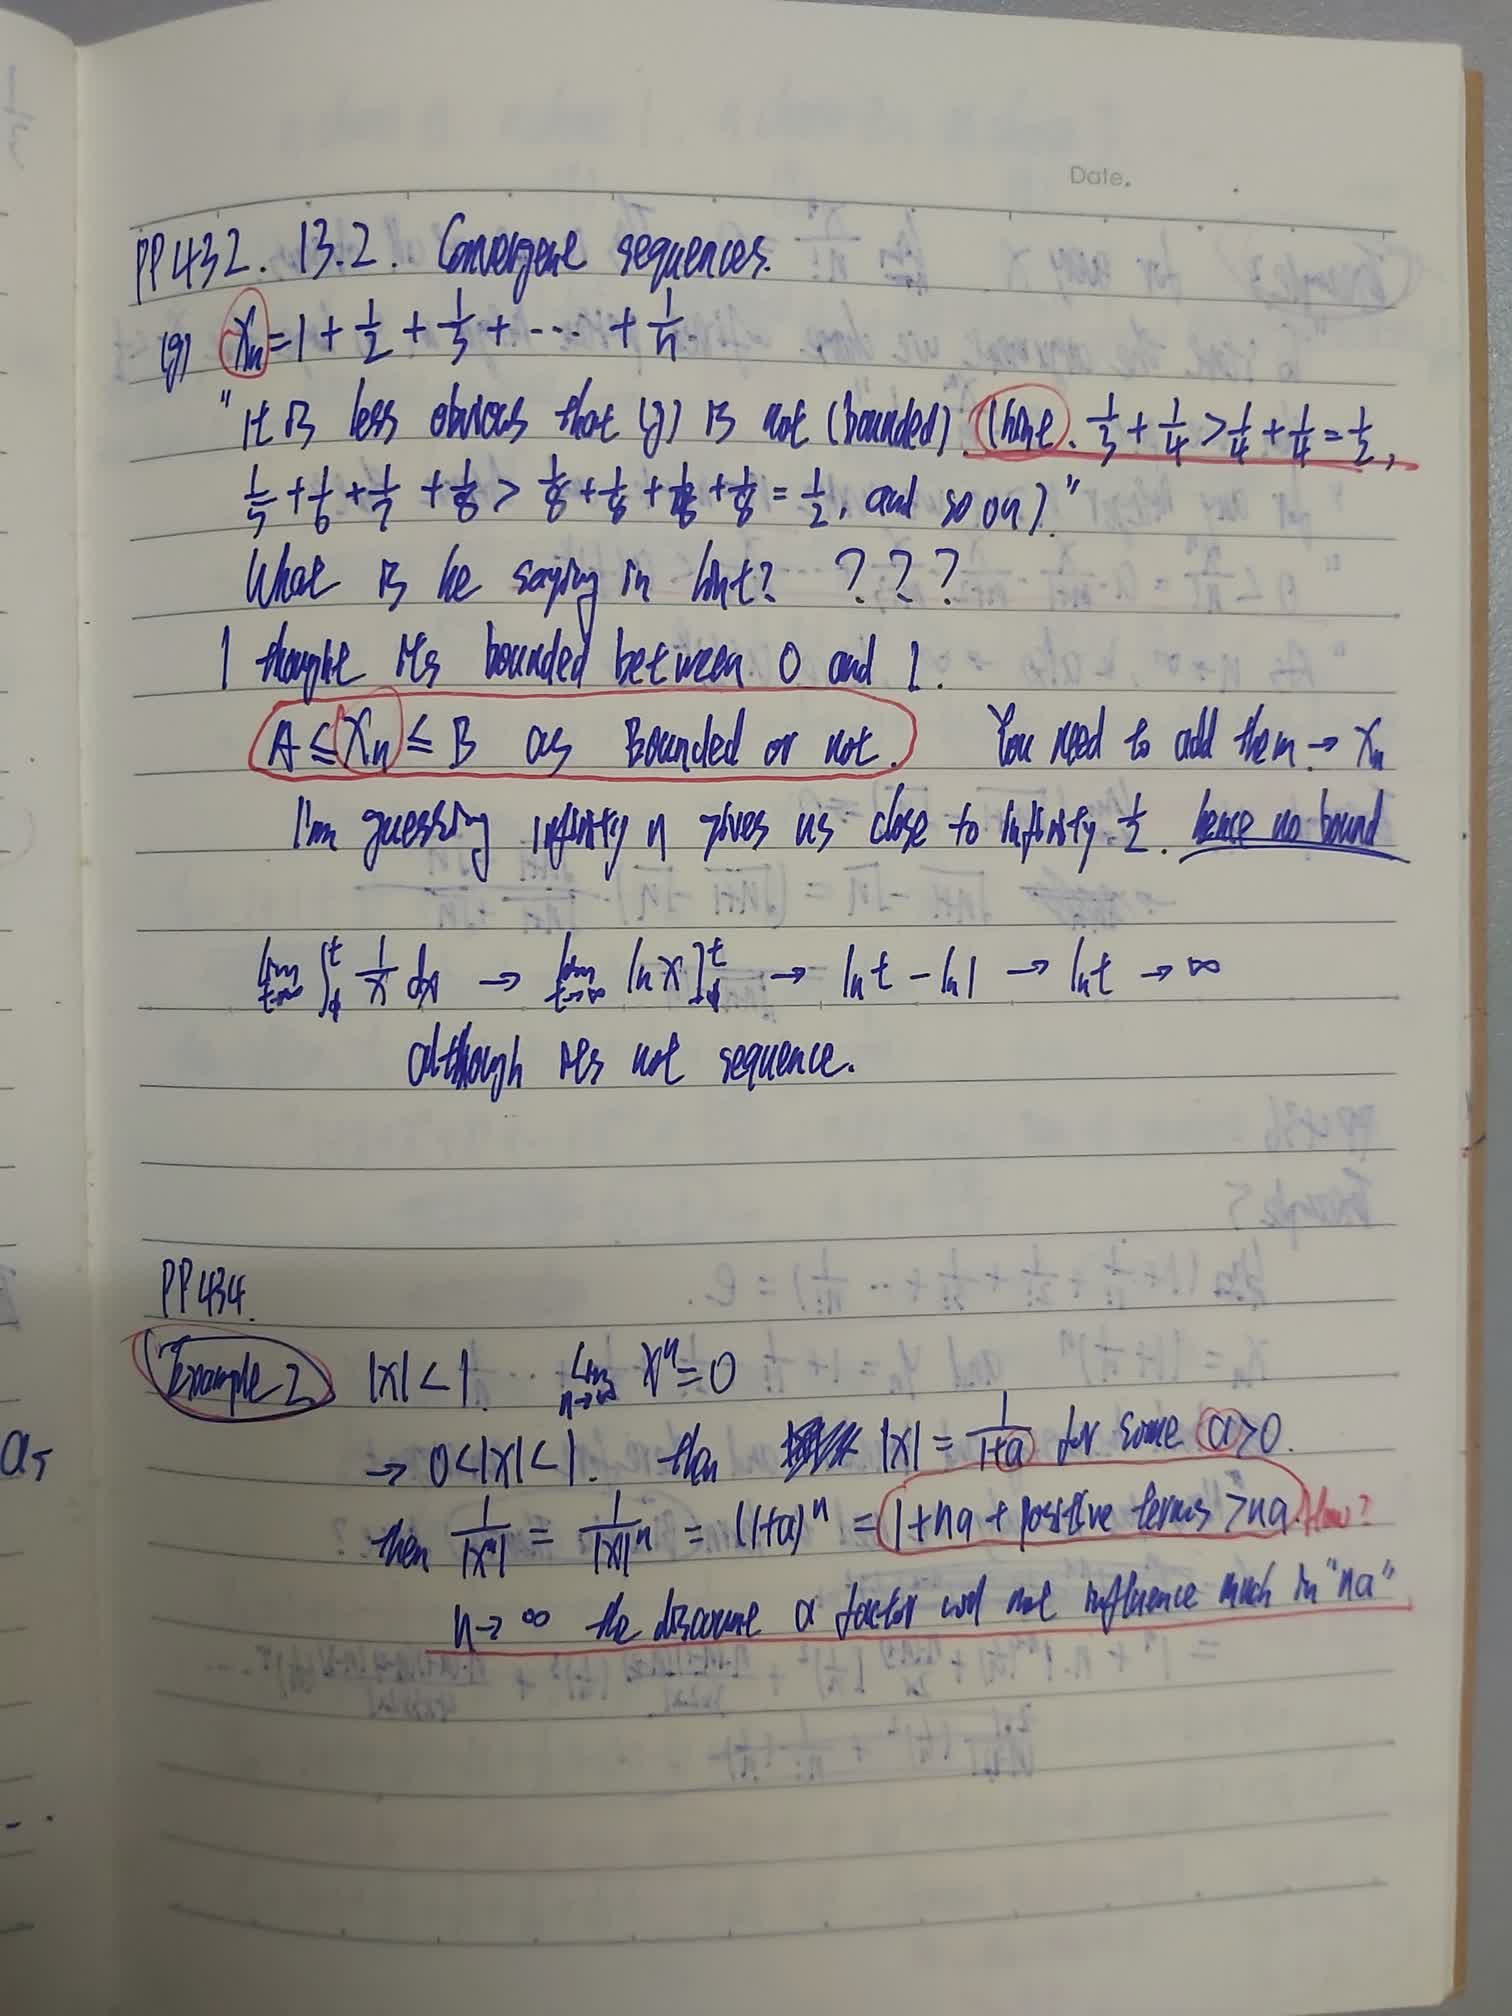 Date.
PP432. 13.2. Convergene sequences.
(g) Xn = 1 + 1/2 + 1/3 + ... + 1/n.
"It is less obvious that (g) is not (bounded). (hint. 1/3 + 1/4 > 1/4 + 1/4 = 1/2,
1/5 + 1/6 + 1/7 + 1/8 > 1/8 + 1/8 + 1/8 + 1/8 = 1/2, and so on)."
What is he saying in hint? ? ? ?
I thought it's bounded between 0 and 1.
A ≤ Xn ≤ B as Bounded or not. You need to add them → Xn
I'm guessing infinity n gives us close to infinity 1/2. hence no bound
lim t→∞ ∫₁ᵗ 1/x dx → lim t→∞ ln x]₁ᵗ → ln t - ln 1 → ln t → ∞
although it's not sequence.
PP434.
Example 2 |x| < 1. lim n→∞ xⁿ = 0
→ 0 < |x| < 1. then |x| = 1/(1+a) for some a > 0.
then 1/|xⁿ| = 1/|x|ⁿ = (1+a)ⁿ = 1 + na + positive terms > na. How?
n→∞ the discount a factor will not influence much in "na"